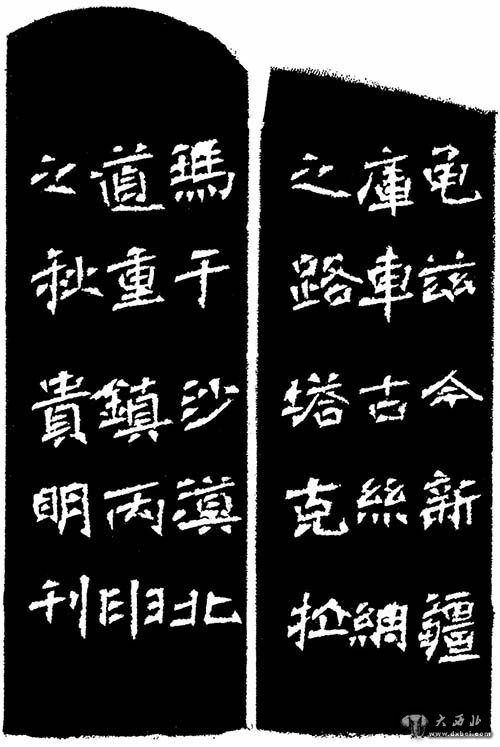 龜兹今新疆
庫車古絲綢
之路塔克拉
瑪干沙漠北
道重鎮丙申
之秋貴明刊
大西北
www.dxbei.com